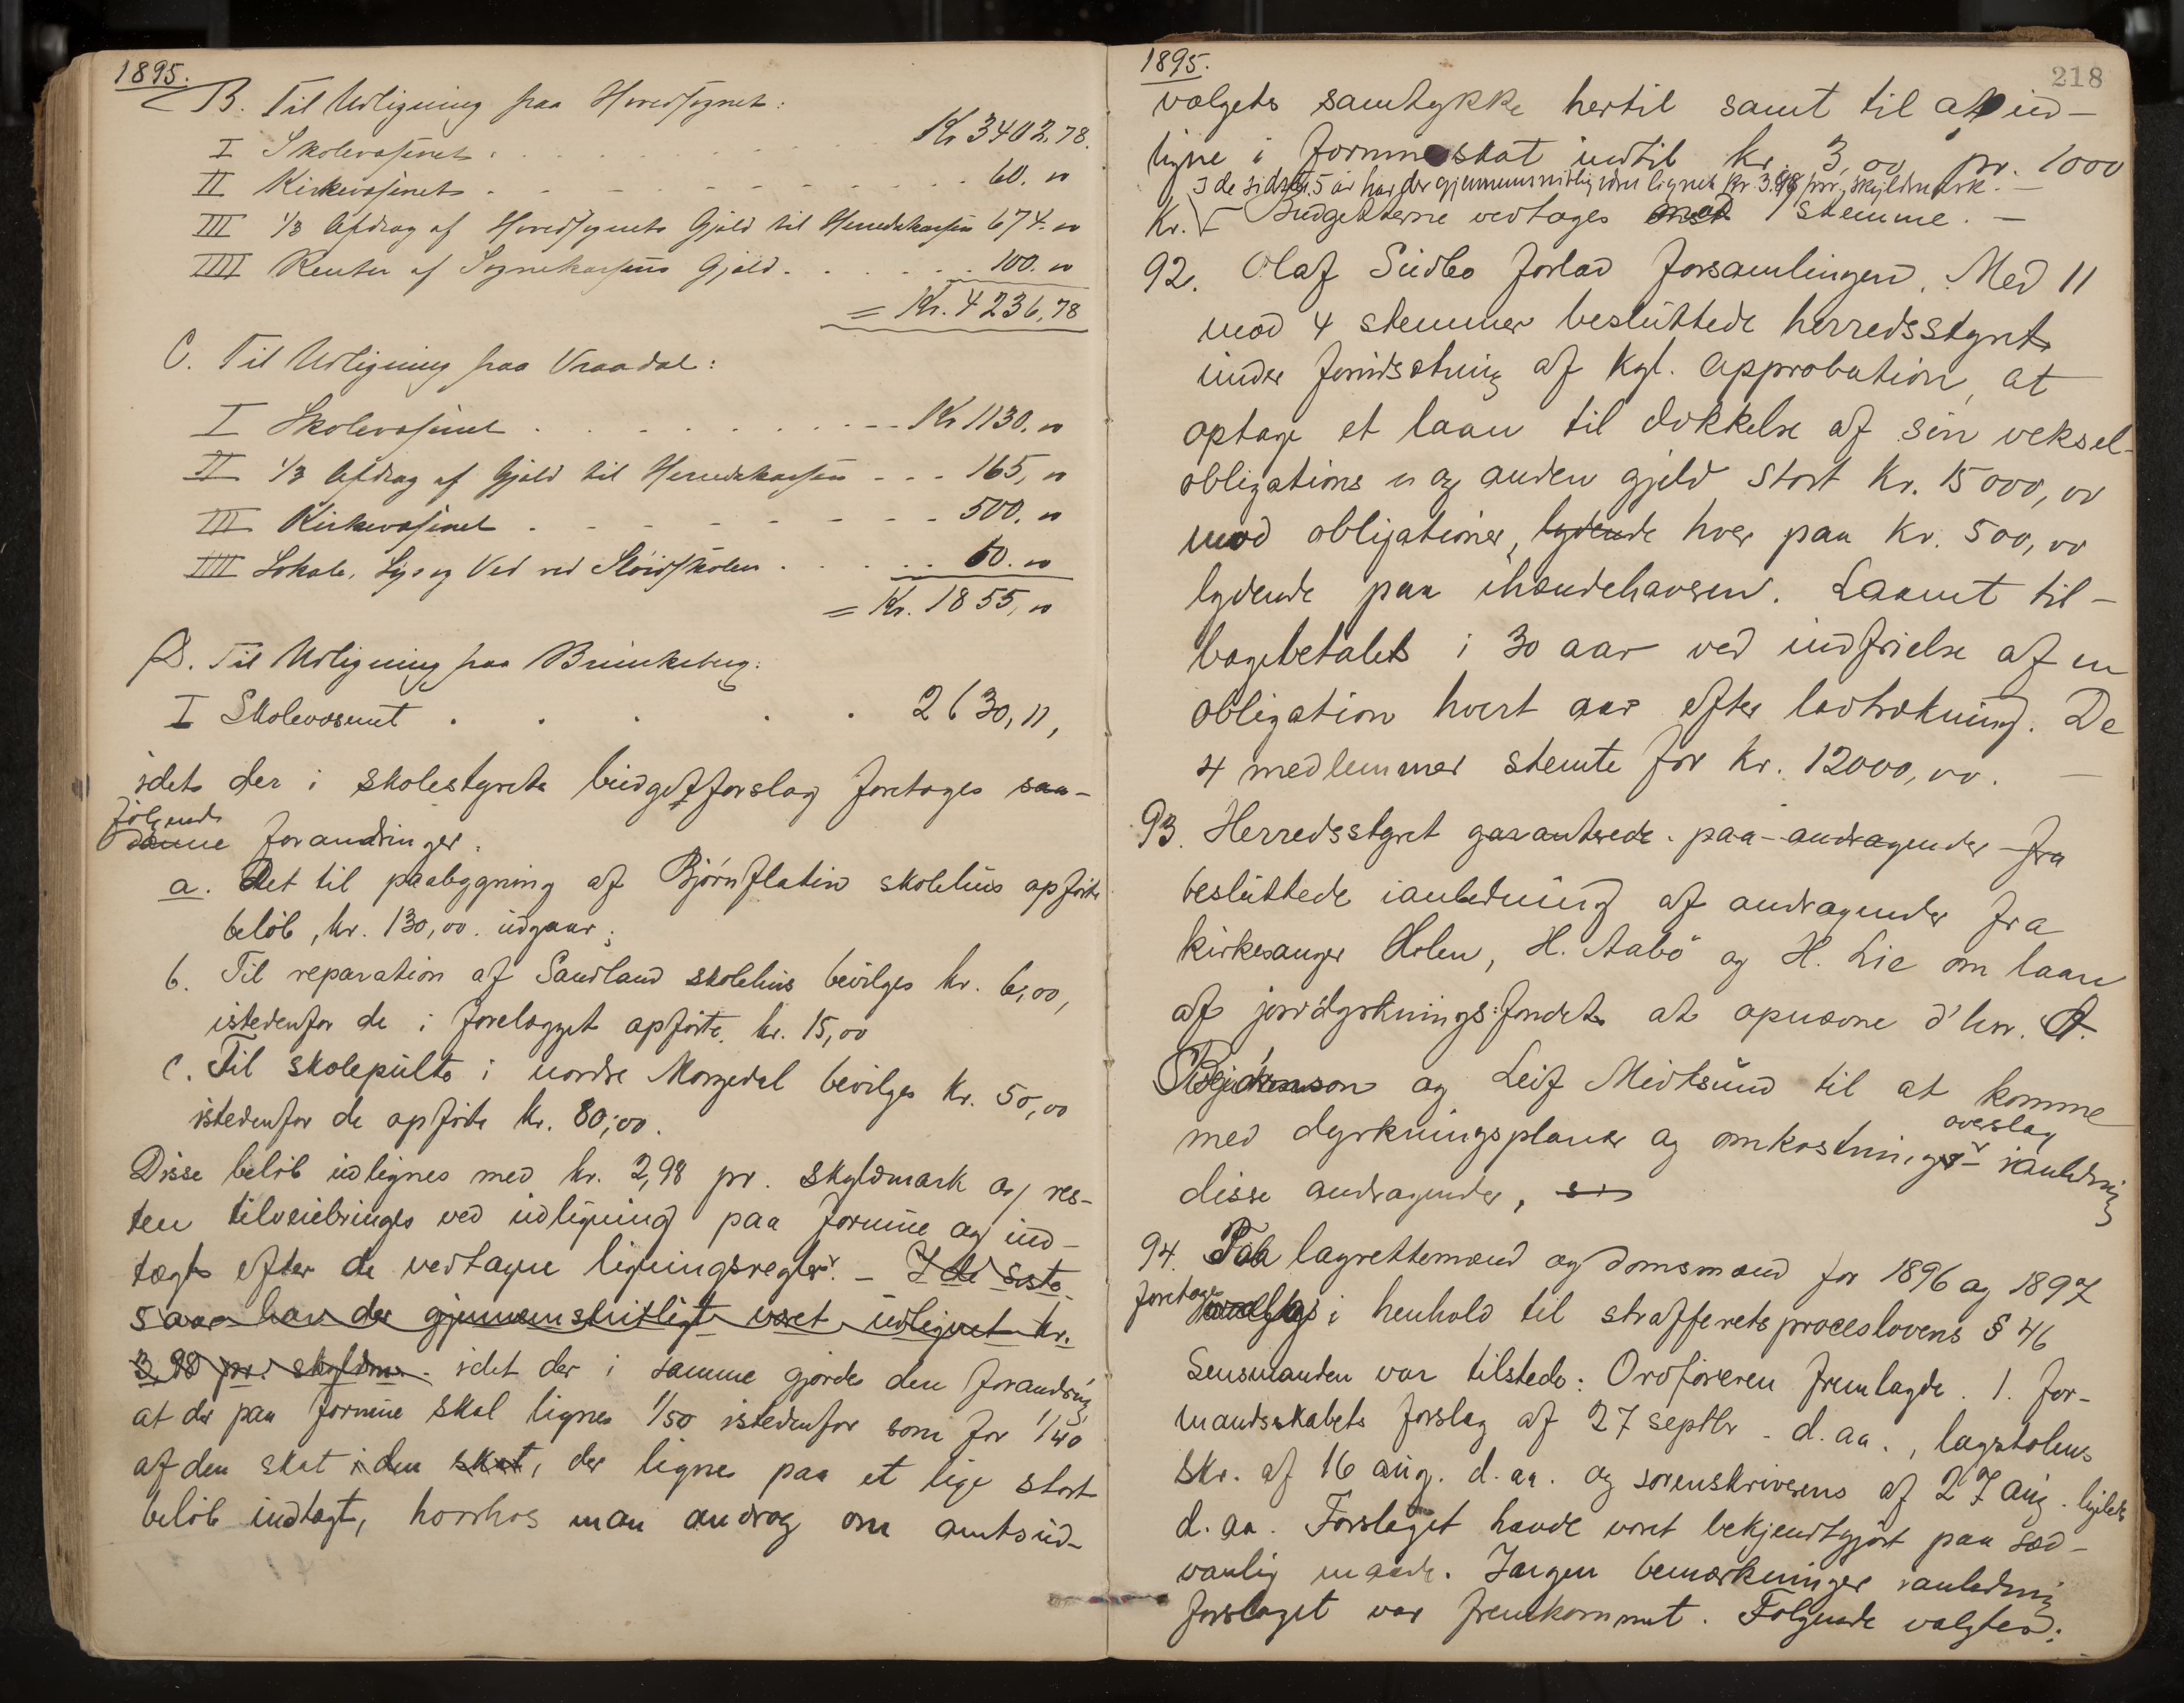 1895.
B. Til Udligning paa Hovedsognet:
I Skolevæsenet . . . . . . Kr 3402,78.
II Kirkevæsenet . . . . . . 60. 00
III 1/3 Afdrag af Hovedsognets Gjæld til Herredskassen 674. 00
IIII Renter af Sognekassens Gjæld . . . . . 100. 00
= Kr. 4236,78
C. Til Udligning paa Vraadal:
I Skolevæsenet . . . . . . Kr 1130. 00
II 1/3 Afdrag af Gjæld til Herredskassen - - - 165, 00
III Kirkevæsenet . . . . . . 500. 00
IIII Lokale, Lys og Ved ved Sløidskolen . . . . . 60. 00
= Kr. 1855, 00
D. Til Udligning paa Brunkeberg:
I Skolevæsenet . . . . . 2630,11,
idet der i skolestyrets budgetforslag foretages saa-
følgende
danne forandringer:
a. Det til paabygning af Bjørnflatin skolehus opførte
beløb, kr. 130,00. udgaar;
b. Til reparation af Sandland skolehus bevilges kr. 6,00,
istedenfor de i forelægget opførte kr. 15,00
c. Til skolepulte i nordre Morgedal bevilges kr. 50,00
istedenfor de opførte kr. 80,00.
Disse beløb udlignes med kr. 2,98 pr. skyldmark og res-
ten tilveiebringes ved udligning paa formue og ind-
tægt efter de vedtagne ligningsregler. - I de siste
5 aar har der gjennemsnitligt været udlignet kr.
3,98 pr. skyldm. idet der i samme gjordes den forandring,
at der paa formue skal lignes 1/50 istedenfor som før 1/40
af den skat i den skat, der lignes paa et lige stort
beløb indtægt, hvorhos man androg om amtsud-
1895.
218
valgets samtykke hertil samt til at ud-
ligne i formueskat indtil kr. 3,00 pr. 1000
I de sidste 5 år har der gjennemsnitlig været lignet kr. 3.98 pr. skyldmark. -
kr. Budgetterne vedtages mod 1 stemme. -
92. Olaf Sudbø forlod forsamlingen. Med 11
mod 4 stemmer besluttede herredsstyret
under forudsetning af kgl. approbation, at
optage et laan til dækkelse af sin veksel-
obligations og anden gjeld stort kr. 15000,00
mod obligationer, lydende hver paa kr. 500,00
lydende paa ihændehaveren. Laanet til-
bagebetales i 30 aar ved indfrielse af en
obligation hvert aar efter lodtrækning. De
4 medlemmer stemte for kr. 12000,00. -
93. Herredsstyret garanterede paa andragender fra
besluttede ianledning af andragender fra
kirkesanger Holen, H. Aabø og H. Lie om laan
af jorddyrkningsfondet at opnævne d'hrr.
og Leif Midtsund til at komme
overslag
med dyrkningsplaner og omkostnings- ianledning
disse andragender,
94. Paa lagrettemænd og domsmænd for 1896 og 1897
foretages
valg i henhold til strafferetsproceslovens § 46
Lensmanden var tilstede: Ordføreren fremlagde. 1. for-
mandsskabets forslag af 27 septbr. d. aa., lagstolens
skr. af 16 aug. d. aa. og sorenskriverens af 27 aug. ligeledes
d. aa. Forslaget havde været bekjendtgjort paa sæd-
vanlig maade. Ingen bemærkninger ianledning
forslaget var fremkommet. Følgende valgtes: